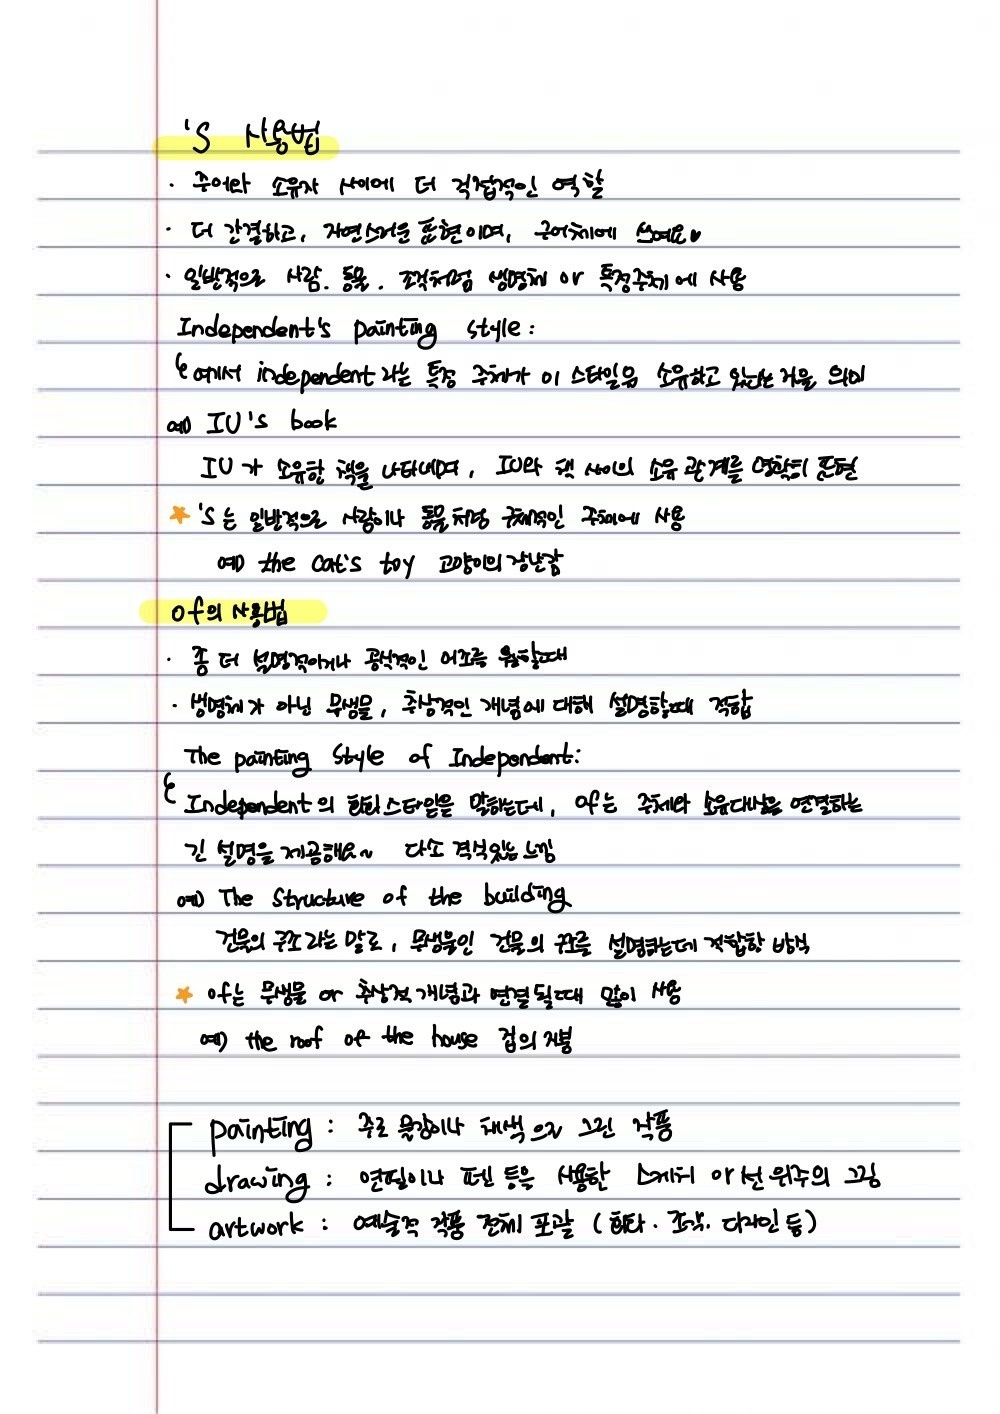 's 사용법
· 주어와 소유자 사이에 더 직접적인 역할
· 더 간결하고, 자연스러운 표현이며, 구어체에 쓰여요♥
· 일반적으로 사람. 동물. 조직처럼 생명체 or 특정주체에 사용
Independent's painting style :
에서 independent라는 특정 주체가 이 스타일을 소유하고 있다는 거을 의미
예) IU's book
IU가 소유한 책을 나타내며, IU와 책 사이의 소유 관계를 명확히 표현
★ 's는 일반적으로 사람이나 동물처럼 구체적인 주체에 사용
예) the cat's toy 고양이의 장난감
of의 사용법
· 좀 더 설명적이거나 공식적인 어조를 원할때
· 생명체가 아닌 무생물, 추상적인 개념에 대해 설명할때 적합
The painting style of Independent:
Independent의 화화스타일을 말하는데, of는 주체와 소유대상을 연결하는
긴 설명을 제공해요~ 다소 격식있는 느낌
예) The structure of the building
건물의 구조라는 말로, 무생물인 건물의 구조를 설명하는데 적합한 방식
★ of는 무생물 or 추상적 개념과 연결될때 많이 사용
예) the roof of the house 집의 지붕
painting : 주로 물감이나 채색으로 그린 작품
drawing : 연필이나 펜 등을 사용한 스케치 or 선 위주의 그림
artwork : 예술적 작품 전체 포괄 (회화. 조각. 디자인 등)